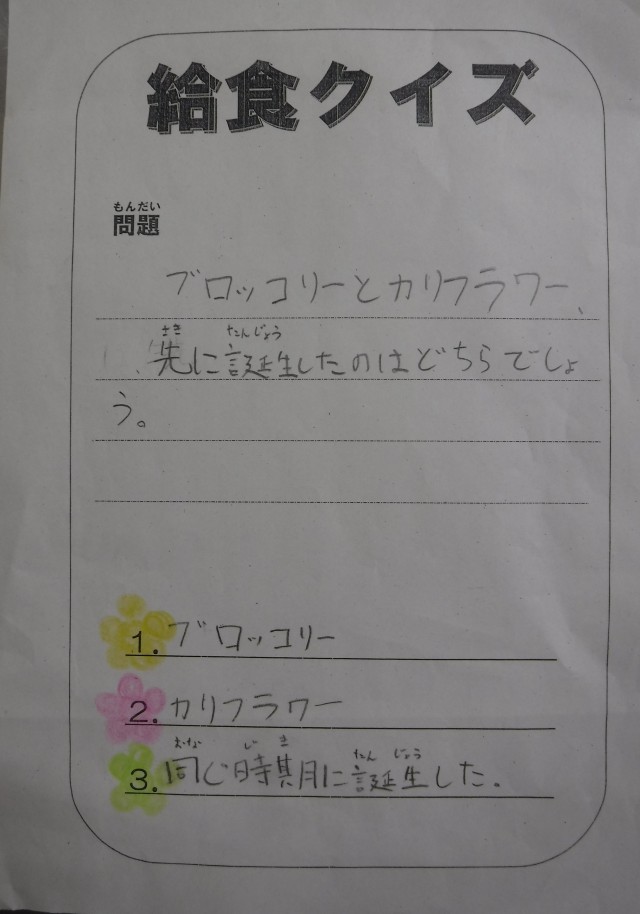 給食クイズ
もんだい
問題
ブロッコリーとカリフラワー、
さき たんじょう
先に誕生したのはどちらでしょ
う。
1. ブロッコリー
2. カリフラワー
おな じ き たん じょう
3. 同じ時期に誕生した。